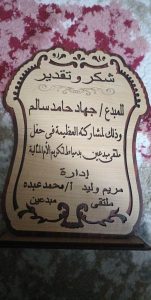 شكر وتقدير
للمبدع / جهاد حامد سالم
وذلك لمشاركته العظيمة في حفل
ملتقى مبدعين بدمياط لتكريم الأم المثالية
إدارة
مريم وليد أ/محمد عبده
ملتقى مبدعين